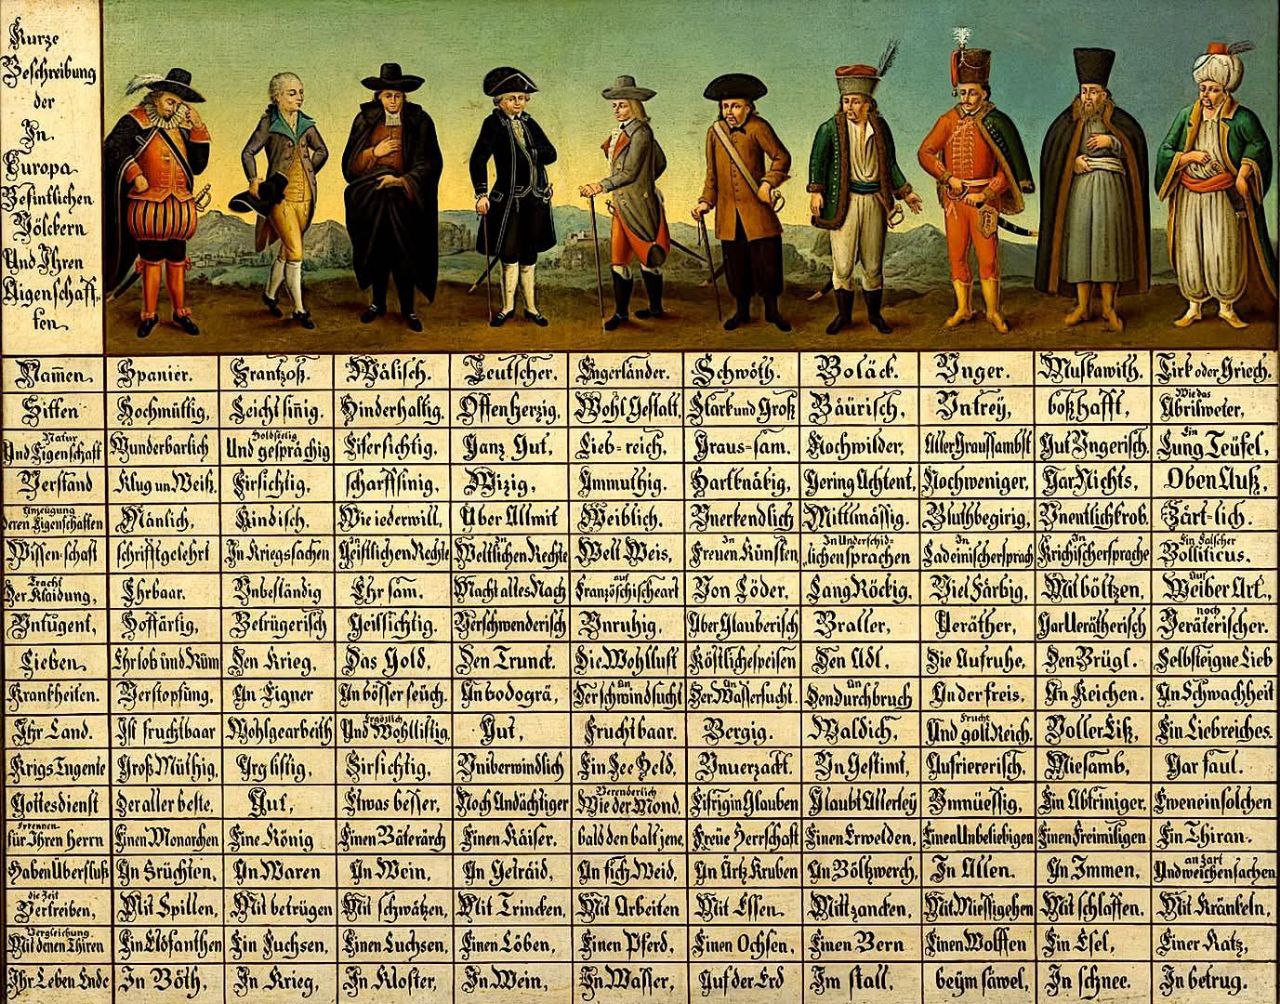 Kurze
Beschreibung
der
In
Europa
Befintlichen
Völckern
Und Ihren
Aigenschaff-
ten
Nam̄en. Spanier. Frantzoß. Wälisch. Teutscher. Engerländer. Schwöth. Boläck. Unger. Muskawith. Tirk oder Griech.
Sitten Hochmüttig, Leicht sinig. Hinderhaltig, Offen Herzig, Wohl Gestalt, Stark und Groß Bäurisch, Untrey, boßhafft, Wie das Abrilweter,
Natur Und Eigenschaft Wunderbarlich Holdseelig Und gesprächig Eifersichtig, Ganz Gut, Lieb-reich, Graus-sam, Nochwilder, Aller Graussambst Gut Ungerisch, Ein Lung Teüfel,
Verstand Klug un Weiß, Firsichtig, scharffsinig, Wizig, Ammuthig, Hartknäbig, Gering Achtent, Nochweniger, Gar Nichts, Oben Auß,
Anzeügung deren Eigenschaften Mänlich, Kindisch, Wie iederwill, Über Allmit Weiblich, Unerkendlich Mittlmässig, Bluthbegirig, Unentlichkrob, Zärt-lich.
Wissenschaft schrifftgelehrt In Kriegsachen In Geistlichen Rechte In Weltlichen Rechte Welt Weis, In Freuen Künsten In Underschid-lichen sprachen In Ladeinischersprach In Krichischersprache Ein falscher Bolliticus.
Tracht Der Klaidung, Ehrbaar. Unbeständig Ehr sam. Macht alles Nach auf Französchischeart Von Löder, Lang Röckig, Viel Färbig, Mit böltzen, Auf Weiber Art.,
Untugent, Hoffärtig, Betrügerisch Geissichtig, Verschwenderisch Unruhig, Über Glauberisch Braller, Veräther, Gar Verätherisch noch Veräterischer.
Lieben Ehrlob und Rüm Den Krieg, Das Gold, Den Trunck. Die Wohllust Köstlichespeisen Den Adl, Die Aufruhe, Den Brügl. Selbsteigne Lieb
Krankheiten. Verstopfung, An Eigner An bösser seüch, An bodogrä, An Der schwindsucht Der Wassersucht. An Den durchbruch An der freis, An Keichen. An Schwachheit
Ihr Land. Ist fruchtbaar Wohlgearbeith Ergözlich Und Wohllistig, Gut, Fruchtbaar. Bergig. Waldich, Frucht Und golt Reich. Voller Eiß, Ein Liebreiches.
Krigs Tugente Groß Müthig, Arglistig, Firsichtig, Uniberwindlich Ein See Held, Unuerzackt. Un Gestimt, Aufriererisch, Miesamb, Gar faul.
Gottesdienst Der aller beste, Gut, Etwas besser, Noch Andächtiger Verenderlich Wie der Mond, Eifrig in Glauben Glaubt Allerley Unmüessig, Ein Abtriniger, Eweneinsolchen
Erkennen für Ihren Herrn Einen Monarchen Eine König Einen Bäterärch Einen Käiser, bald den balt jene, Freüe Herrschaft Einen Erwelden, Einen Unbeliebigen Einen Freimiligen Ein Thiran.
Haben Überfluß An Früchten, An Waren An Wein, An Geträid, An fich Weid, An Ärtz Kruben An Böltzwerch, In Allen. In Immen, an zart Und weichen sachen
die Zeit Vertreiben, Mit Spillen, Mit betrügen Mit schwätzen, Mit Trincken, Mit Arbeiten Mit Essen. Mitt zancken, Mit Miessigehen Mit schlaffen. Mit Kränkeln,
Vergleichung. Mit denen Thiren Ein Elofanthen Ein Fuchsen, Einen Luchsen, Einen Löben, Einen Pferd, Einen Ochsen, Einen Bern Einen Wolffen Ein Esel, Einer Katz,
Ihr Leben Ende In Böth, In Krieg, In Kloster, In Wein, In Wasser, Auf der Erd Im stall, beÿm säwel, In schnee. In betrug.